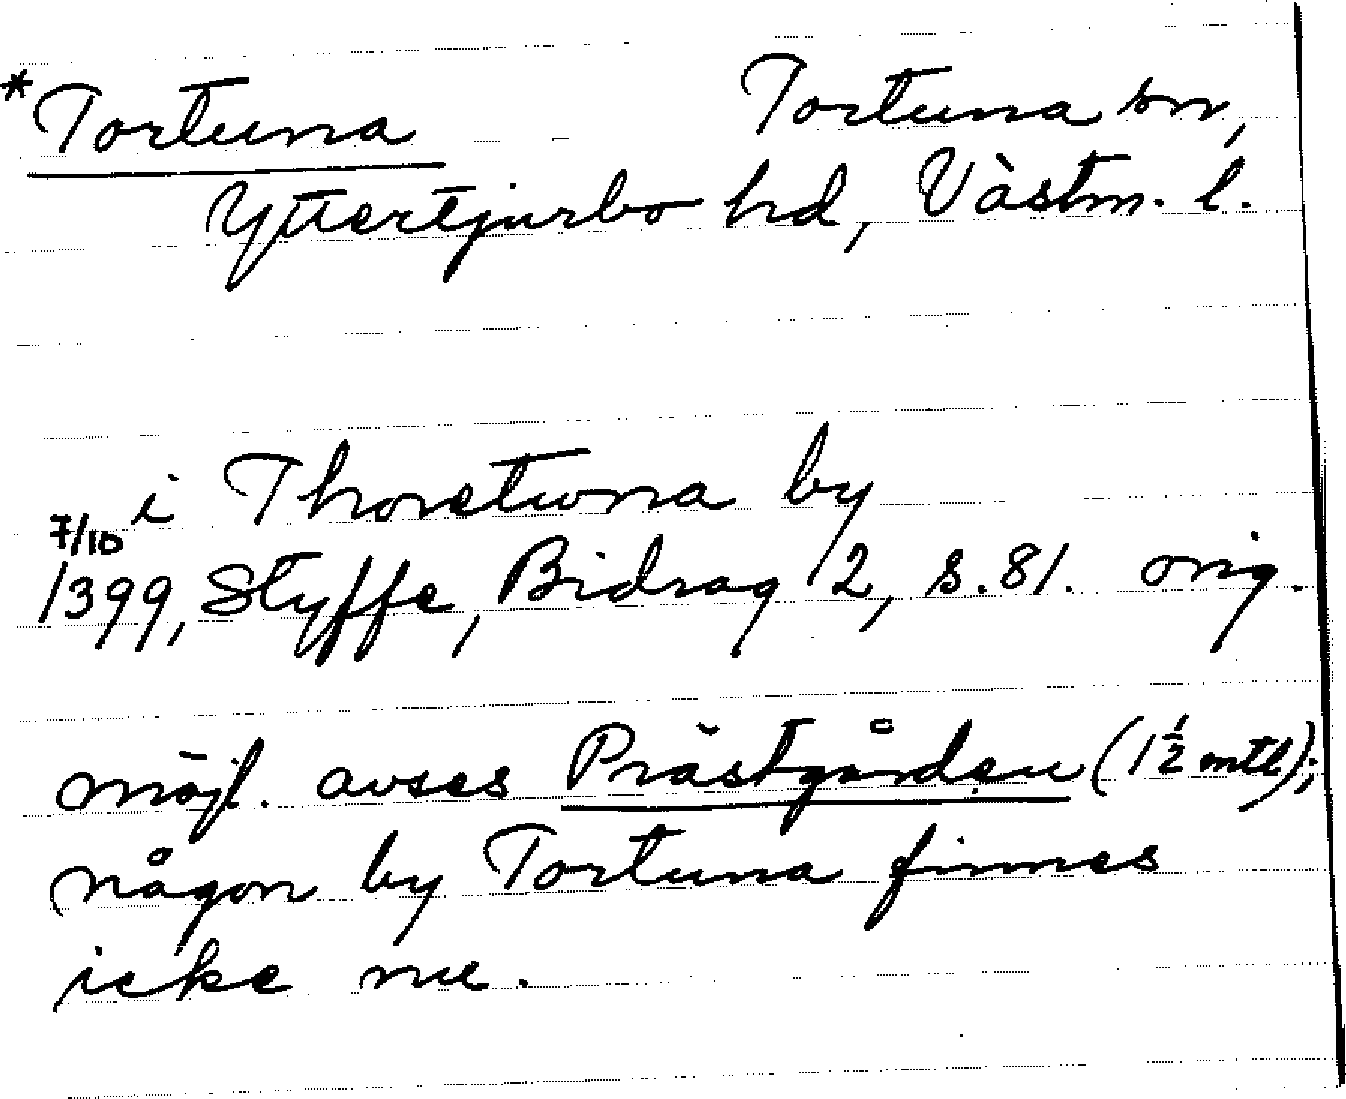 *Tortuna Tortuna sn,
Yttertjurbo hd, Västm. l.
i Thoretuna by
7/10
1399, Styffe, Bidrag 2, s. 81. orig.
möjl. avses Prästgården (1 1/2 mtl);
någon by Tortuna finnes
icke nu.